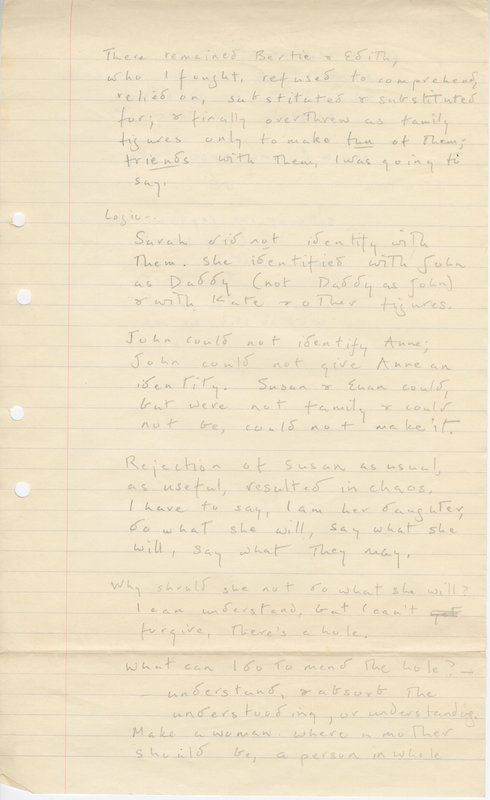 There remained Bertie & Edith,
who I fought, refused to comprehend,
relied on, substituted & substituted
for; & finally overthrew as family
figures only to make fun of them;
friends with them, I was going to
say.
Logic -.
Sarah did not identify with
them. She identified with John
as Daddy (not Daddy as John)
& with Kate & other figures.
John could not identify Anne;
John could not give Anne an
identity. Susan & Euan could,
but were not family & could
not be, could not make it.
Rejection of Susan as usual,
as useful, resulted in chaos.
I have to say, I am her daughter,
do what she will, say what she
will, say what they may.
Why should she not do what she will?
I can understand, but I can't get
forgive, there's a hole.
What can I do to mend the hole? -
- understand, & absorb the
understooding, or understanding.
Make a woman where a mother
should be, a person in whole